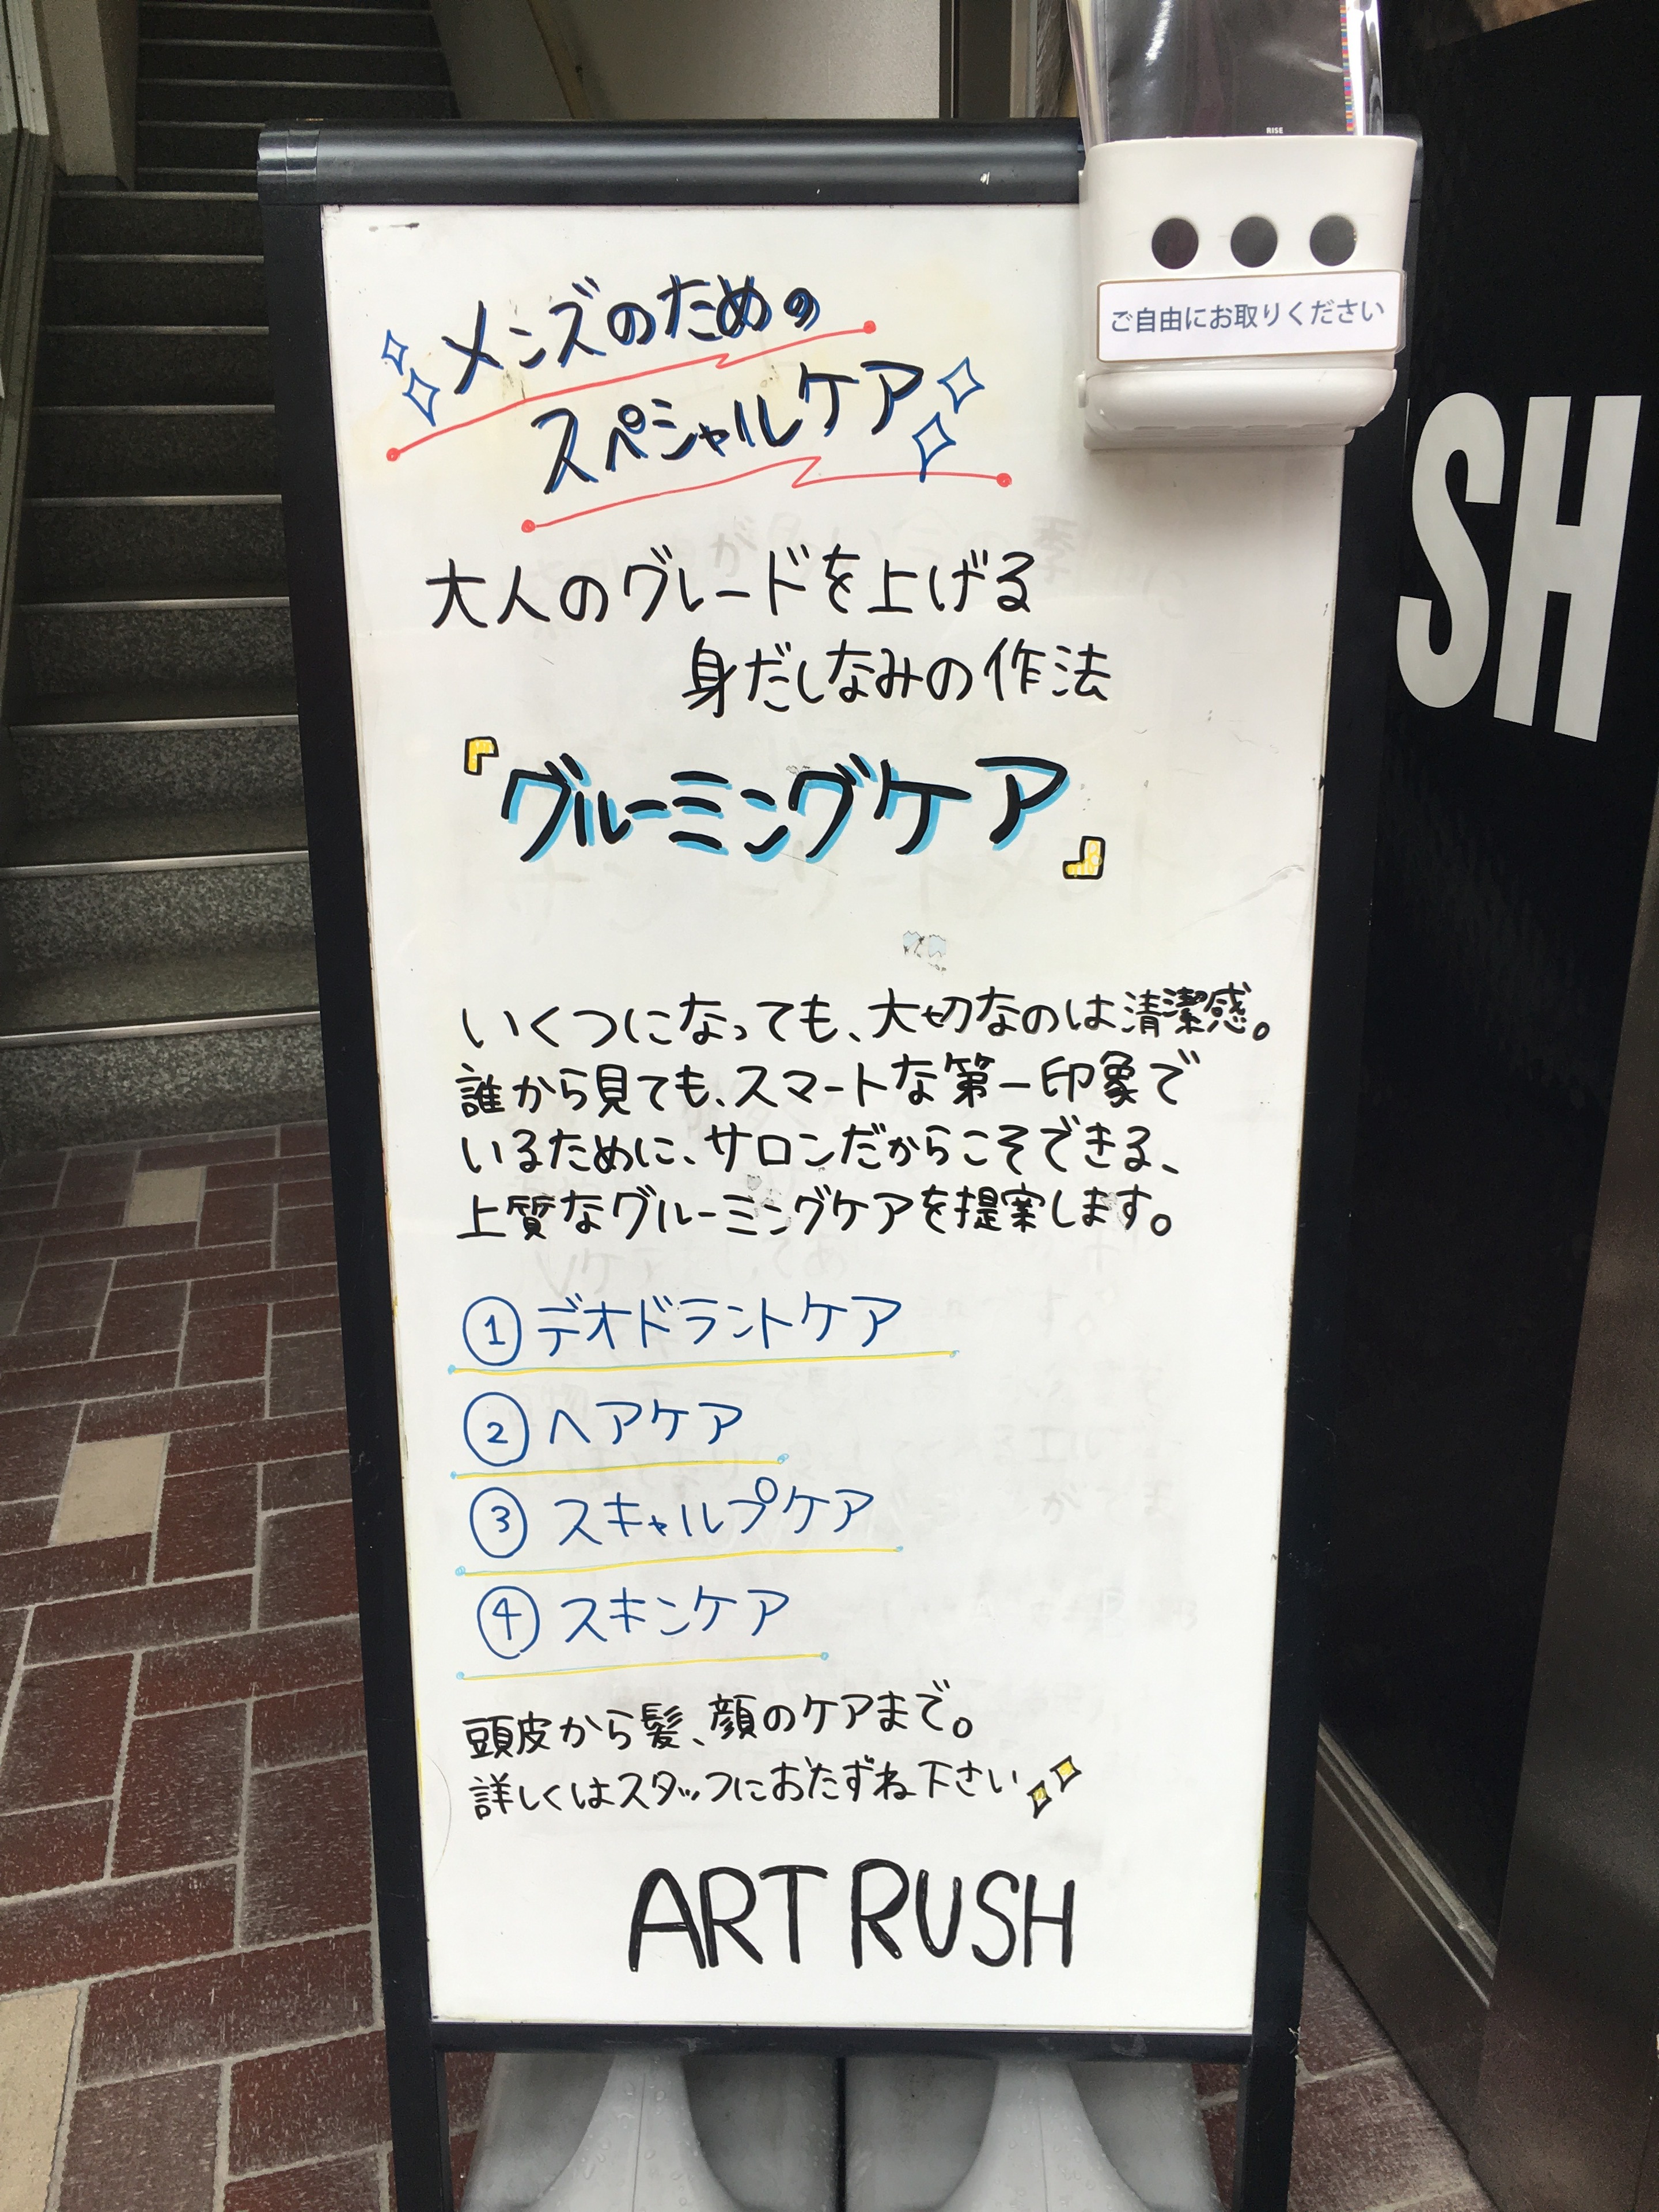 RISE
ご自由にお取りください
SH
メンズのための
スペシャルケア
大人のグレードを上げる
身だしなみの作法
『グルーミングケア』
いくつになっても、大切なのは清潔感。
誰から見ても、スマートな第一印象で
いるために、サロンだからこそできる、
上質なグルーミングケアを提案します。
① デオドラントケア
② ヘアケア
③ スキャルプケア
④ スキンケア
頭皮から髪、顔のケアまで。
詳しくはスタッフにおたずね下さい
ART RUSH